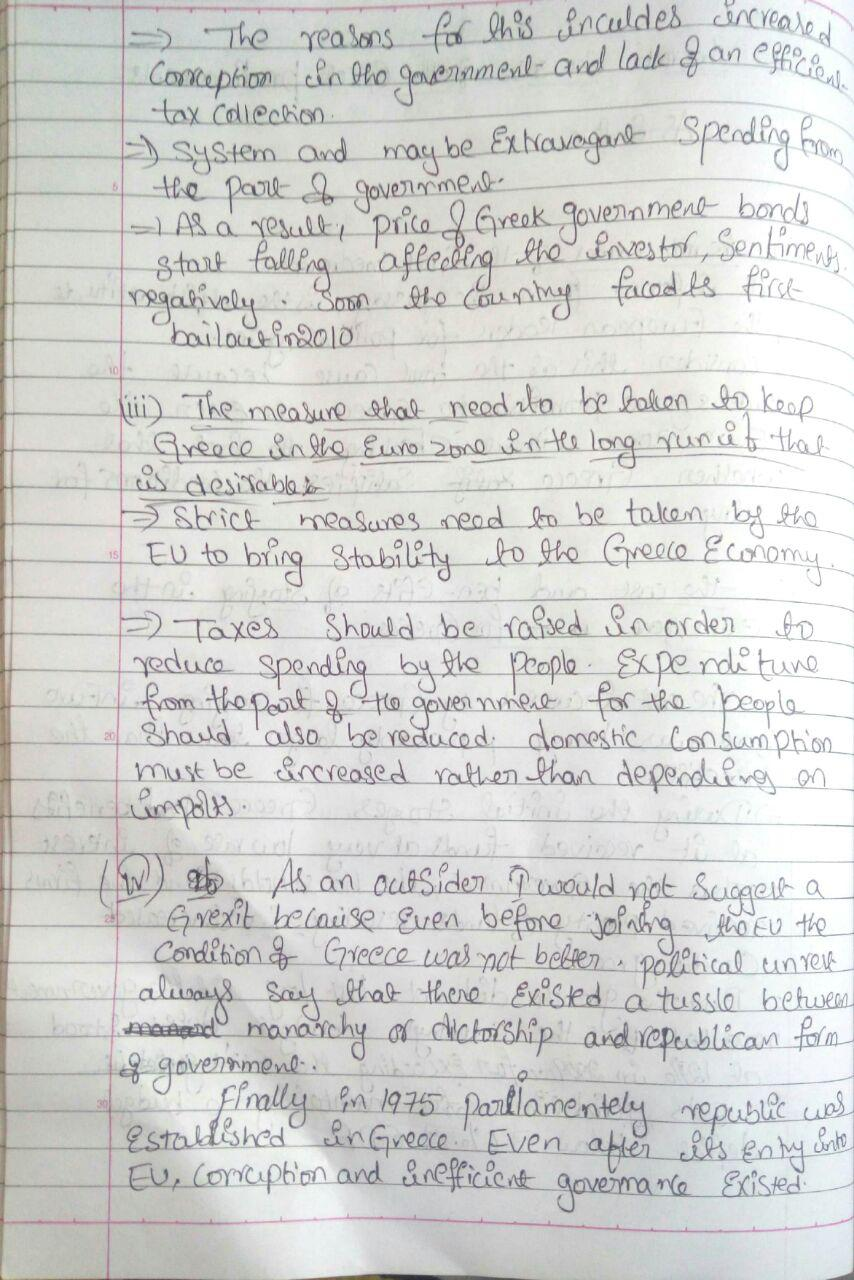 => The reasons for this inculdes increased
Corruption in the government and lack of an efficient
tax Collection.
=> System and may be Extravagant Spending from
the part of government.
=> As a result, price of Greek government bonds
start falling affecting the investor, Sentiments
negatively. Soon the Country faced its first
bailout in 2010
(iii) The measure that need to be taken to keep
Greece in the Euro zone in the long run if that
is desirable
=> Strict measures need to be taken by the
EU to bring Stability to the Greece Economy.
=> Taxes Should be raised in order to
reduce Spending by the people. Expenditure
from the part of the government for the people
Should also be reduced. domestic Consumption
must be increased rather than depending on
imports
(iv) As an outSider I would not Suggest a
Grexit because Even before joining the EU the
Condition of Greece was not better. political unrest
always Say that there Existed a tussle between
manarchy or dictorship and republican form
of government.
Finally in 1975 parliamentely republic was
Established in Greece. Even after its Entry into
EU, Corruption and inefficient governance Existed.
5
10
15
20
25
30